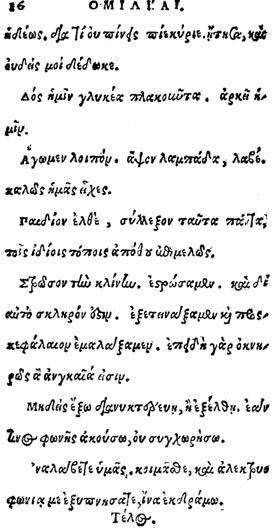 16 ΟΜΙΛΙΑΙ.
ἡδέως. διατί οὐ πίνεις πιὲ κύριε. ᾔτησα, καὶ
οὐδείς μοι δέδωκε.
Δὸς ἡμῖν γλυκέα πλακοῦντα. ἀρκεῖ ἡ-
μῖν.
Ἄγωμεν λοιπόν. ἅψον λαμπάδα, λαβέ.
καλῶς ἡμᾶς εἶχες.
Παιδίον ἐλθὲ, σύλλεξον ταῦτα πάντα,
τοῖς ἰδίοις τόποις ἀπόθου ἐπιμελῶς.
Στρῶσον τὴν κλίνην. ἐστρώσαμεν. καὶ διὰ
αὐτὸ σκληρόν ἐστιν. ἐξετινάξαμεν καὶ πρὸς
κεφάλαιον ἐμαλάξαμεν. ἐπειδὴ γὰρ ὀκνη-
ρῶς ἃ ἀναγκαῖά εἰσιν.
Μηδεὶς ἔξω διανυκτορεύῃ, ἢ ἐξέλθῃ. ἐάν
τινος φωνῆς ἀκούσω, οὐ συγχωρήσω.
Ἀναλάβετε ὑμᾶς, κοιμᾶσθε, καὶ ἀλεκτρυο
φωνίᾳ με ἐξυπνήσατε, ἵνα ἐκδράμω.
Τέλος.